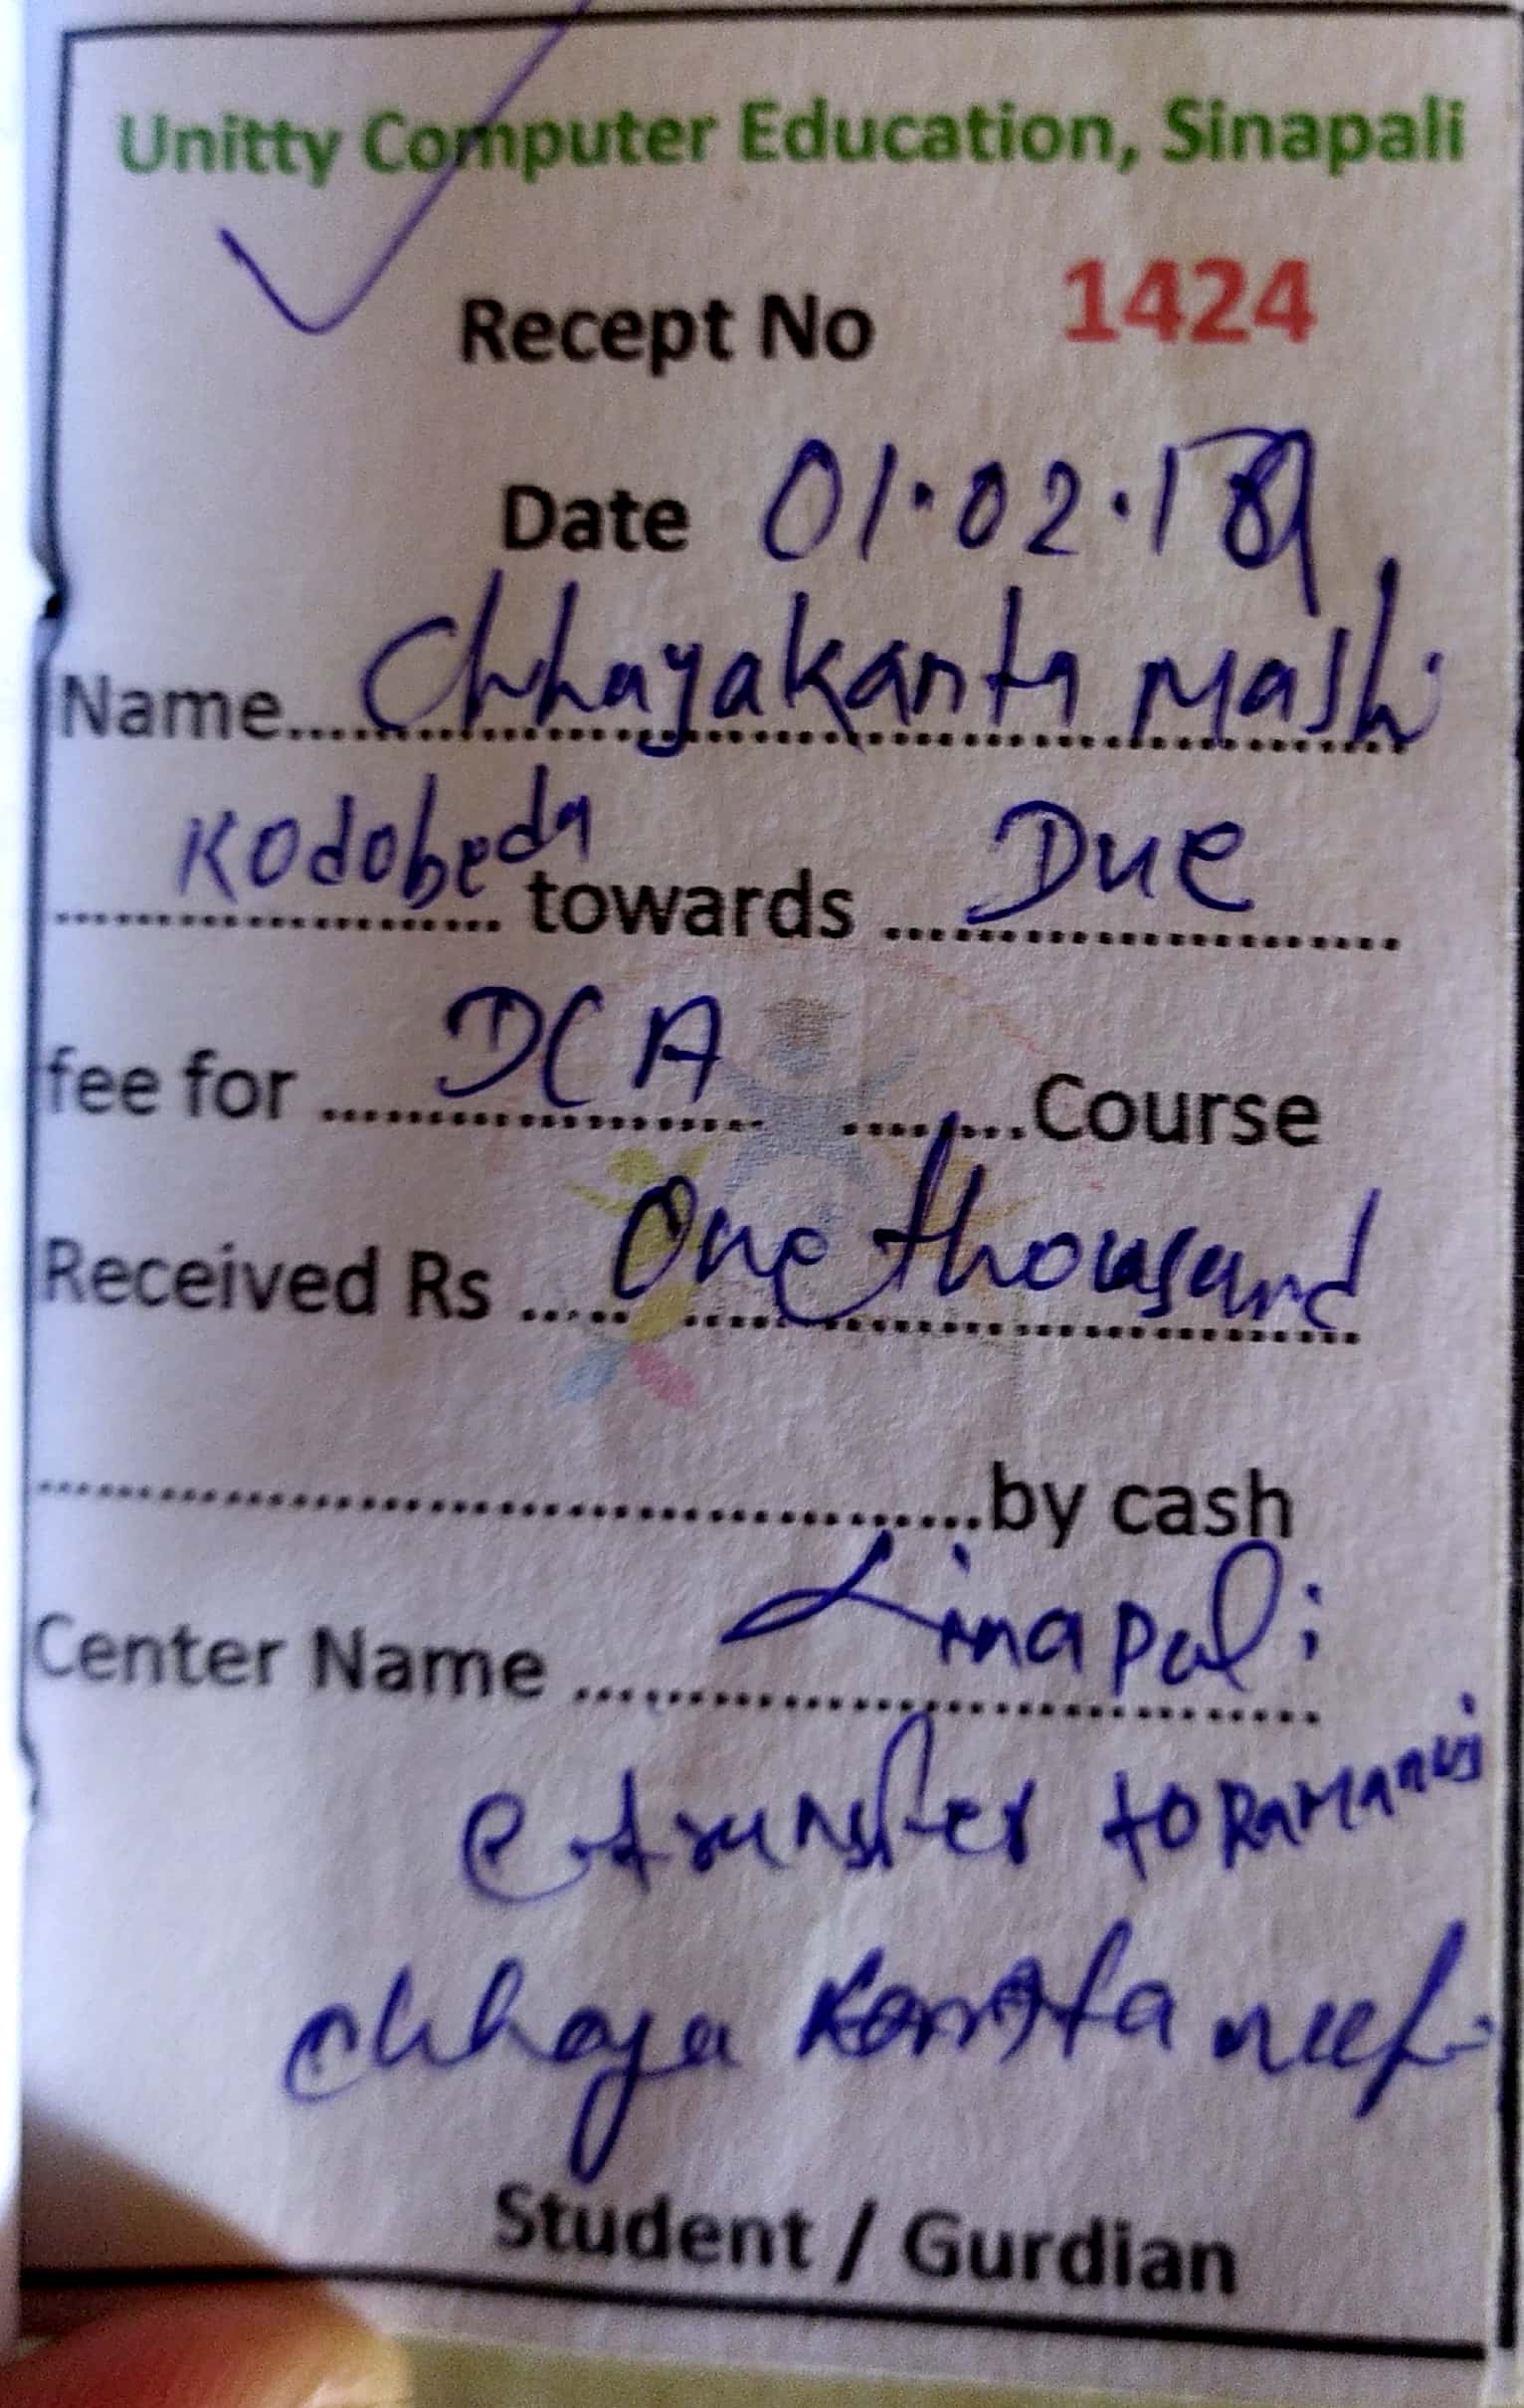 Unitty Computer Education, Sinapali
Recept No 1424
Date 01.02.19
Name Chhayakanta Mashi
Kodobeda towards Due
fee for DCA Course
Received Rs One thousand
by cash
Center Name Sinapali
e transfer to Ramanuj
Chhaya Kanta
Student / Gurdian